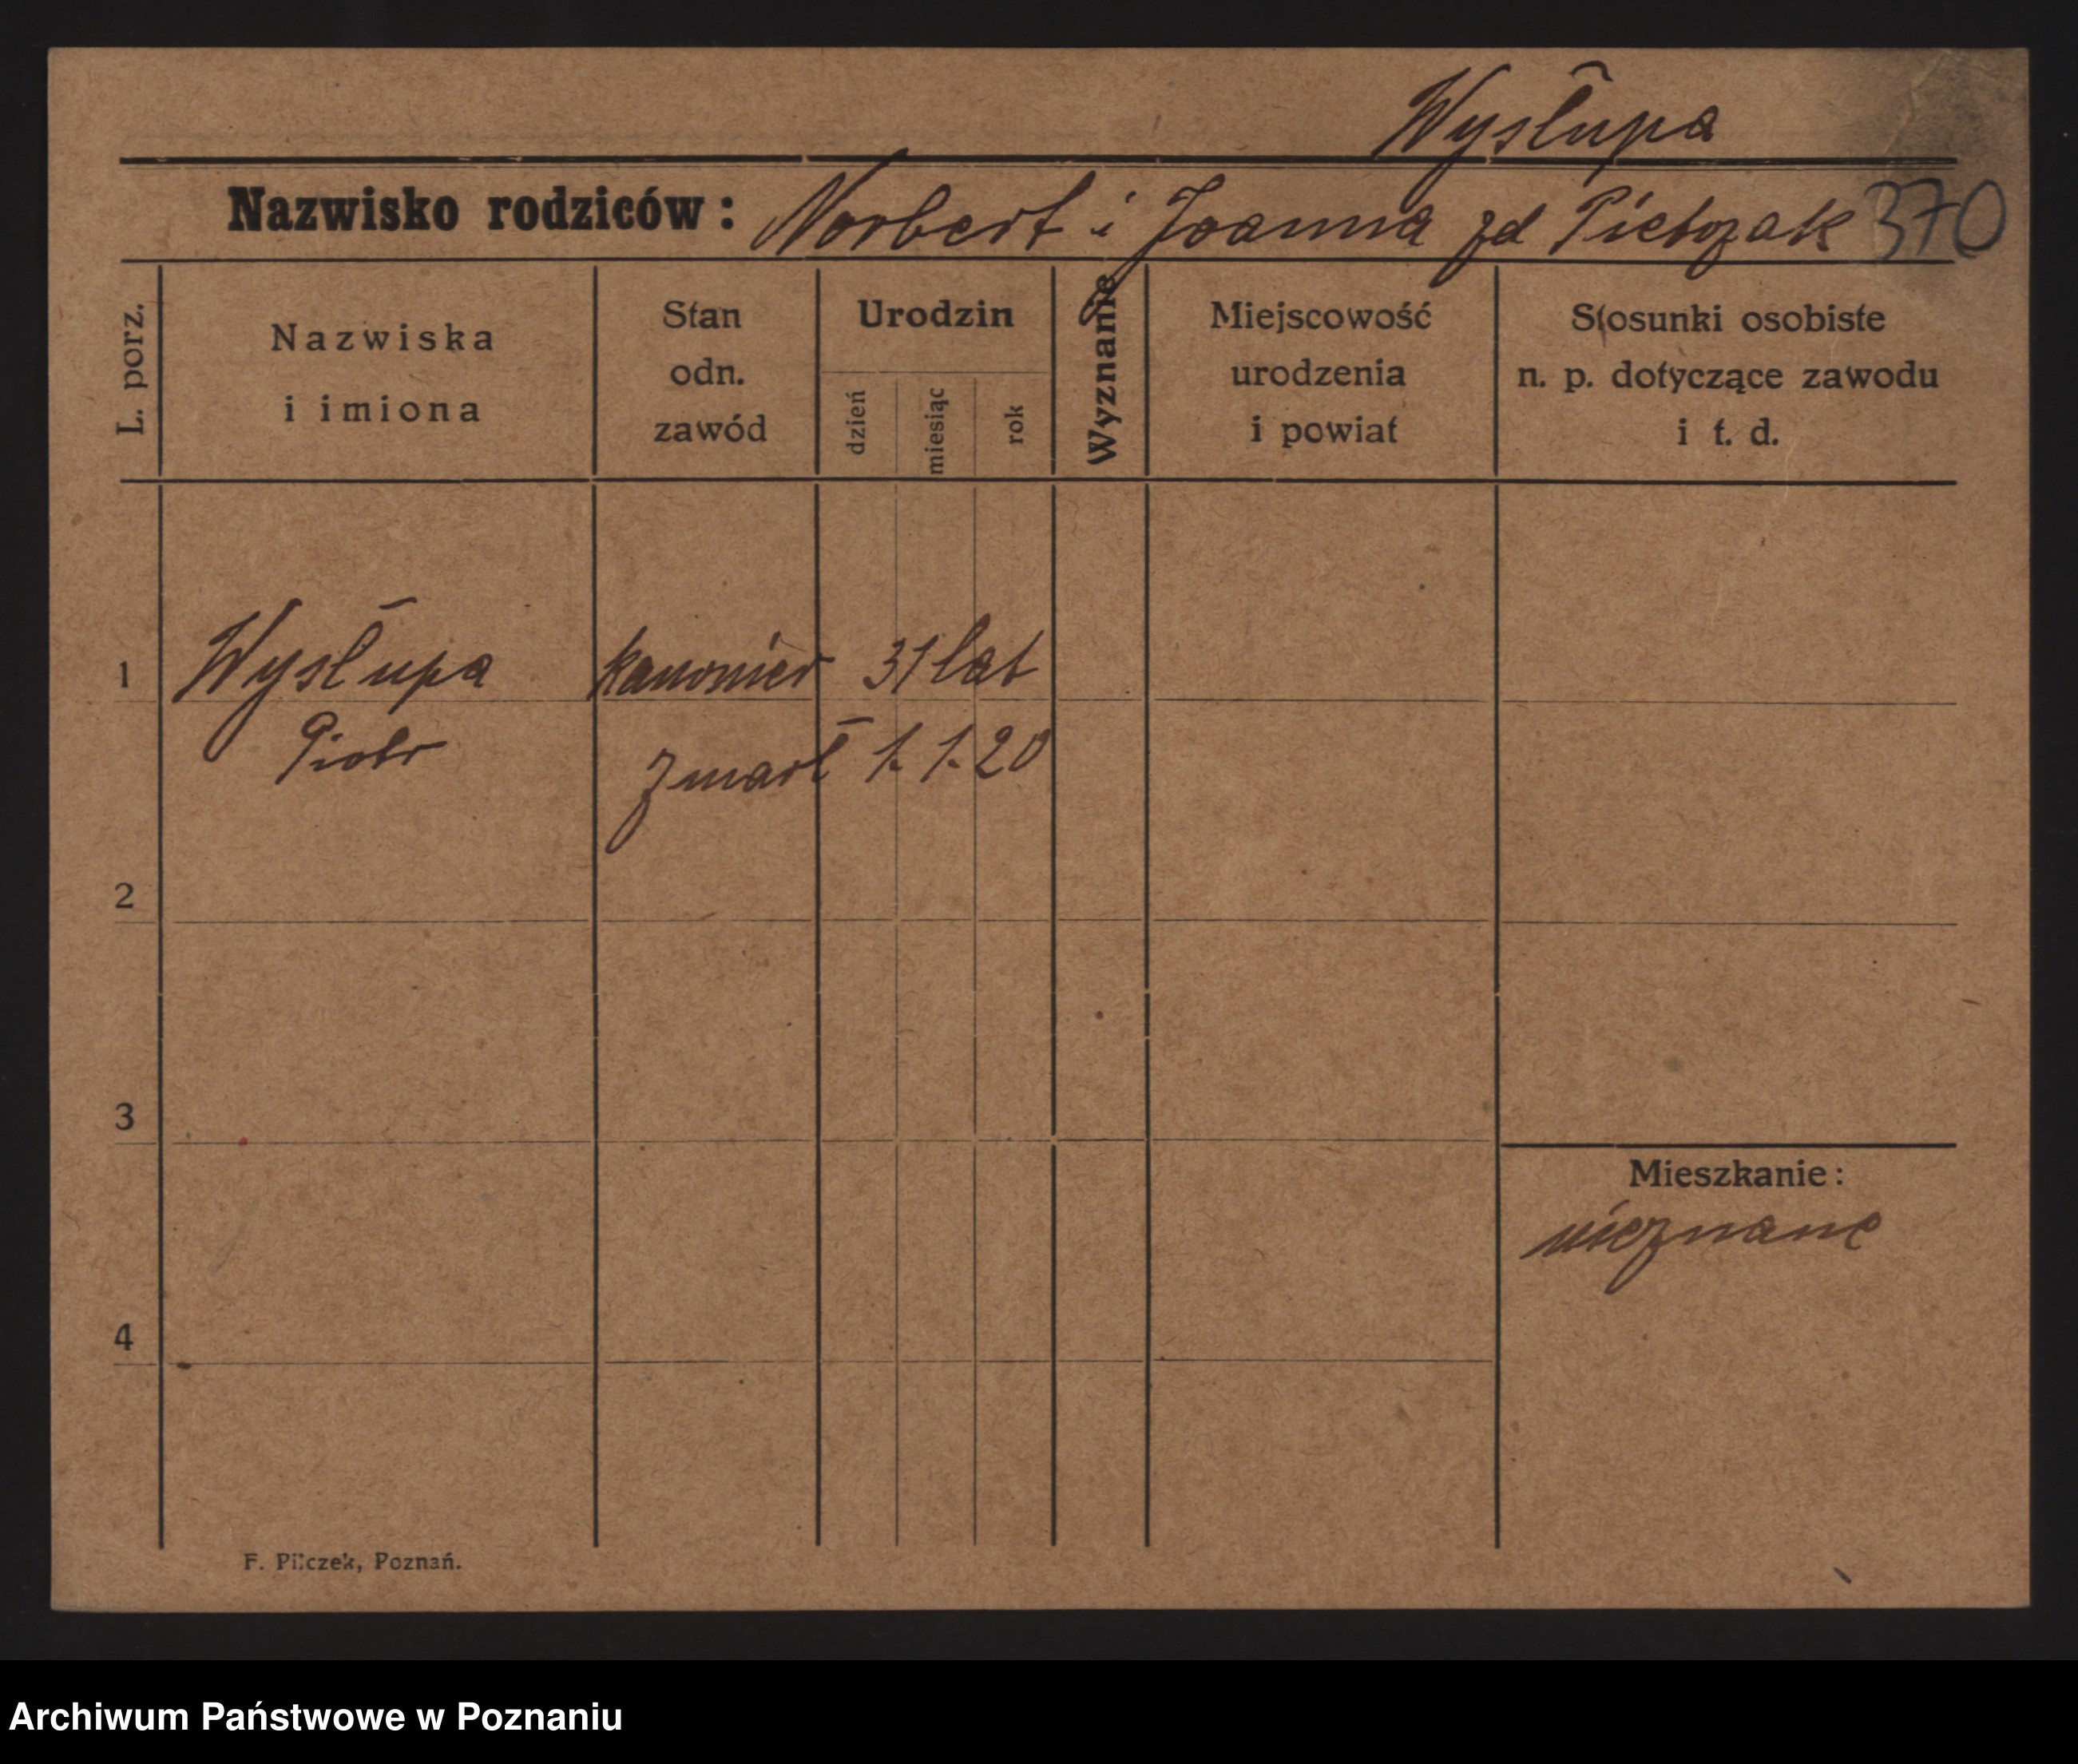 Wysłupa
Nazwisko rodziców: Norbert i Joanna zd Pietrzak 370
L. porz.
Nazwiska
i imiona
Stan
odn.
zawód
Urodzin
dzień
miesiąc
rok
Wyznanie
Miejscowość
urodzenia
i powiat
Stosunki osobiste
n. p. dotyczące zawodu
i t. d.
1 Wysłupa kanonier 31 lat
Piotr zmarł 1. 1. 20
2
3
Mieszkanie:
nieznane
4
F. Pilczek, Poznań.
Archiwum Państwowe w Poznaniu